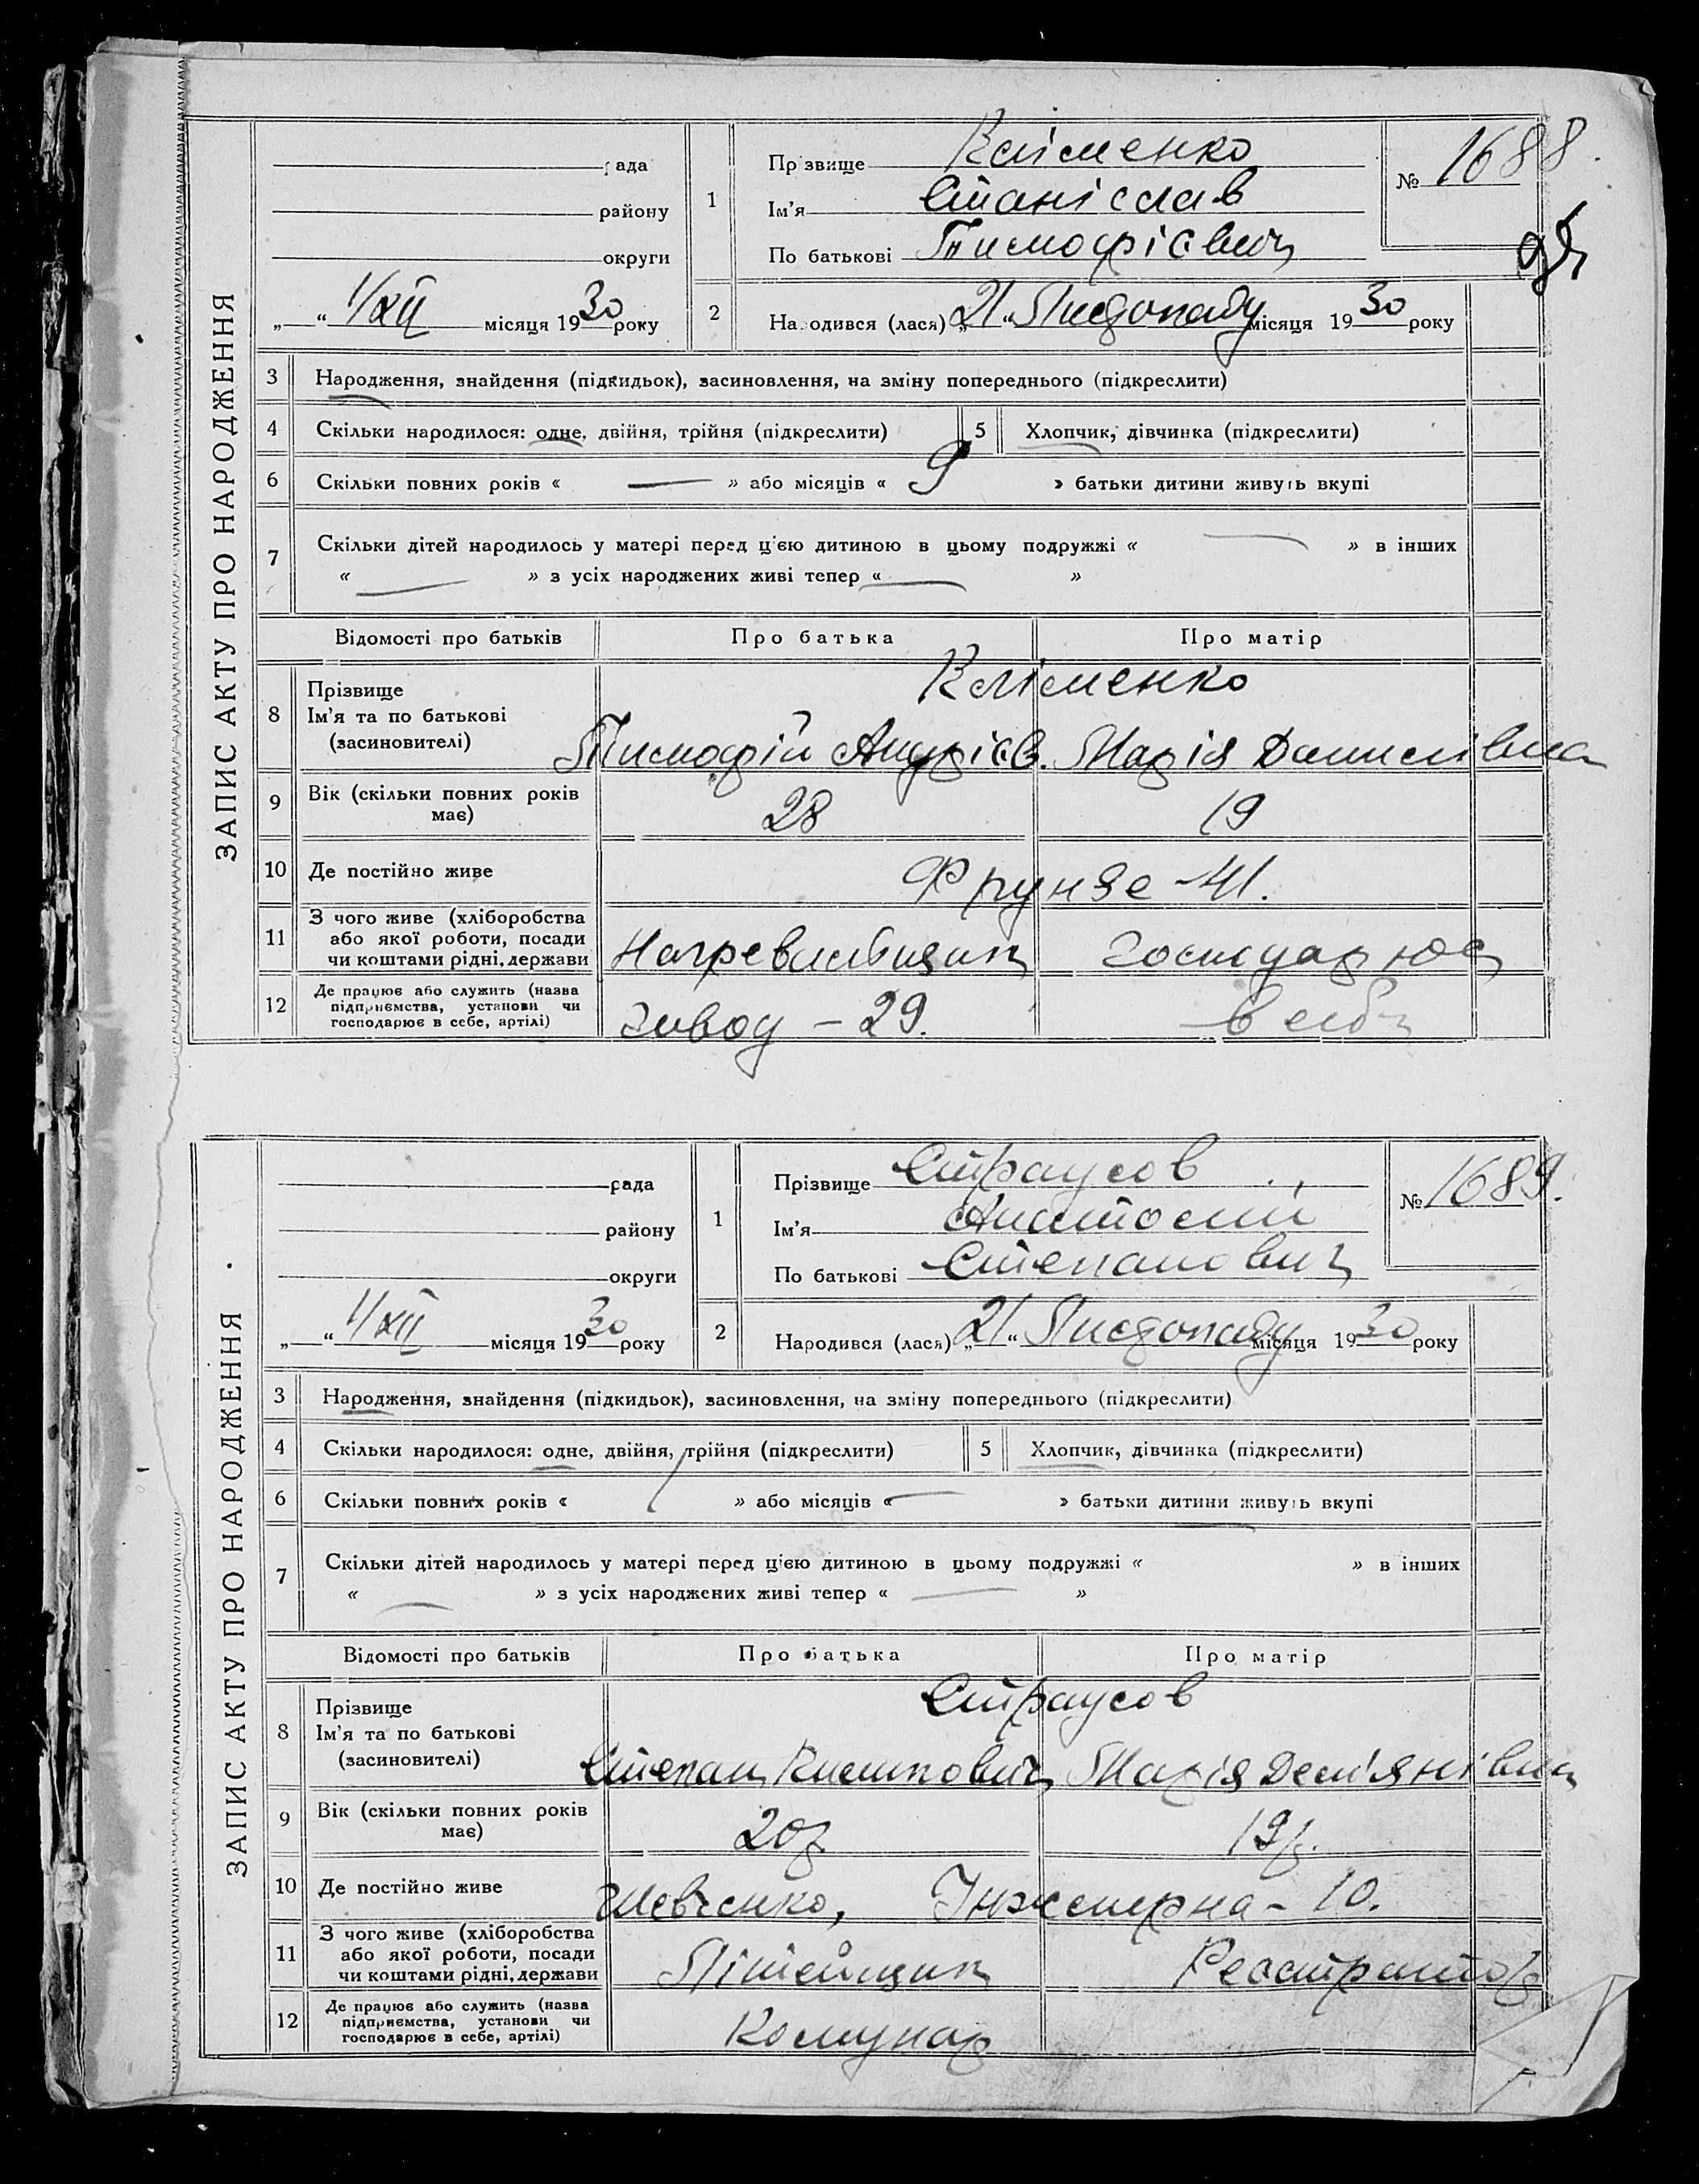 ЗАПИС АКТУ ПРО НАРОДЖЕННЯ
рада
району
округи
„ “ 1/XII місяця 1930 року
1
Прізвище Кліменко
Ім’я Станіслав
По батькові Тимофієвич
№ 1688.
2
Народився (лася) „21“ Листопаду місяця 1930 року
3 Народження, знайдення (підкидьок), засиновлення, на зміну попереднього (підкреслити)
4 Скільки народилося: одне, двійня, трійня (підкреслити)
5 Хлопчик, дівчинка (підкреслити)
6 Скільки повних років « — » або місяців « 9 » батьки дитини живуть вкупі
7 Скільки дітей народилось у матері перед цією дитиною в цьому подружжі « — » в інших
« — » з усіх народжених живі тепер « — »
Відомості про батьків Про батька Про матір
8 Прізвище
Ім’я та по батькові
(засиновителі)
Кліменко
Тимофій Андрієв. Марія Данилівна
9 Вік (скільки повних років має) 28 19
10 Де постійно живе Фрунзе - 41.
11 З чого живе (хліборобства
або якої роботи, посади
чи коштами рідні, держави
Господарює
12 Де працює або служить (назва
підприємства, установи чи
господарює в себе, артілі)
Завод - 29. в себе
ЗАПИС АКТУ ПРО НАРОДЖЕННЯ
рада
району
округи
„ “ 1/XII місяця 1930 року
1
Прізвище Страусов
Ім’я Анатолій
По батькові Степанович
№ 1689.
2
Народився (лася) „21“ Листопаду місяця 1930 року
3 Народження, знайдення (підкидьок), засиновлення, на зміну попереднього (підкреслити)
4 Скільки народилося: одне, двійня, трійня (підкреслити)
5 Хлопчик, дівчинка (підкреслити)
6 Скільки повних років « 1 » або місяців « — » батьки дитини живуть вкупі
7 Скільки дітей народилось у матері перед цією дитиною в цьому подружжі « » в інших
« — » з усіх народжених живі тепер « — »
Відомості про батьків Про батька Про матір
8 Прізвище
Ім’я та по батькові
(засиновителі)
Страусов
Степан Марія Дем’янівна
9 Вік (скільки повних років має) 20р. 19р.
10 Де постійно живе Шевченко, Інженерна - 10.
11 З чого живе (хліборобства
або якої роботи, посади
чи коштами рідні, держави
Літейщик Реєстратор
12 Де працює або служить (назва
підприємства, установи чи
господарює в себе, артілі)
Комунар